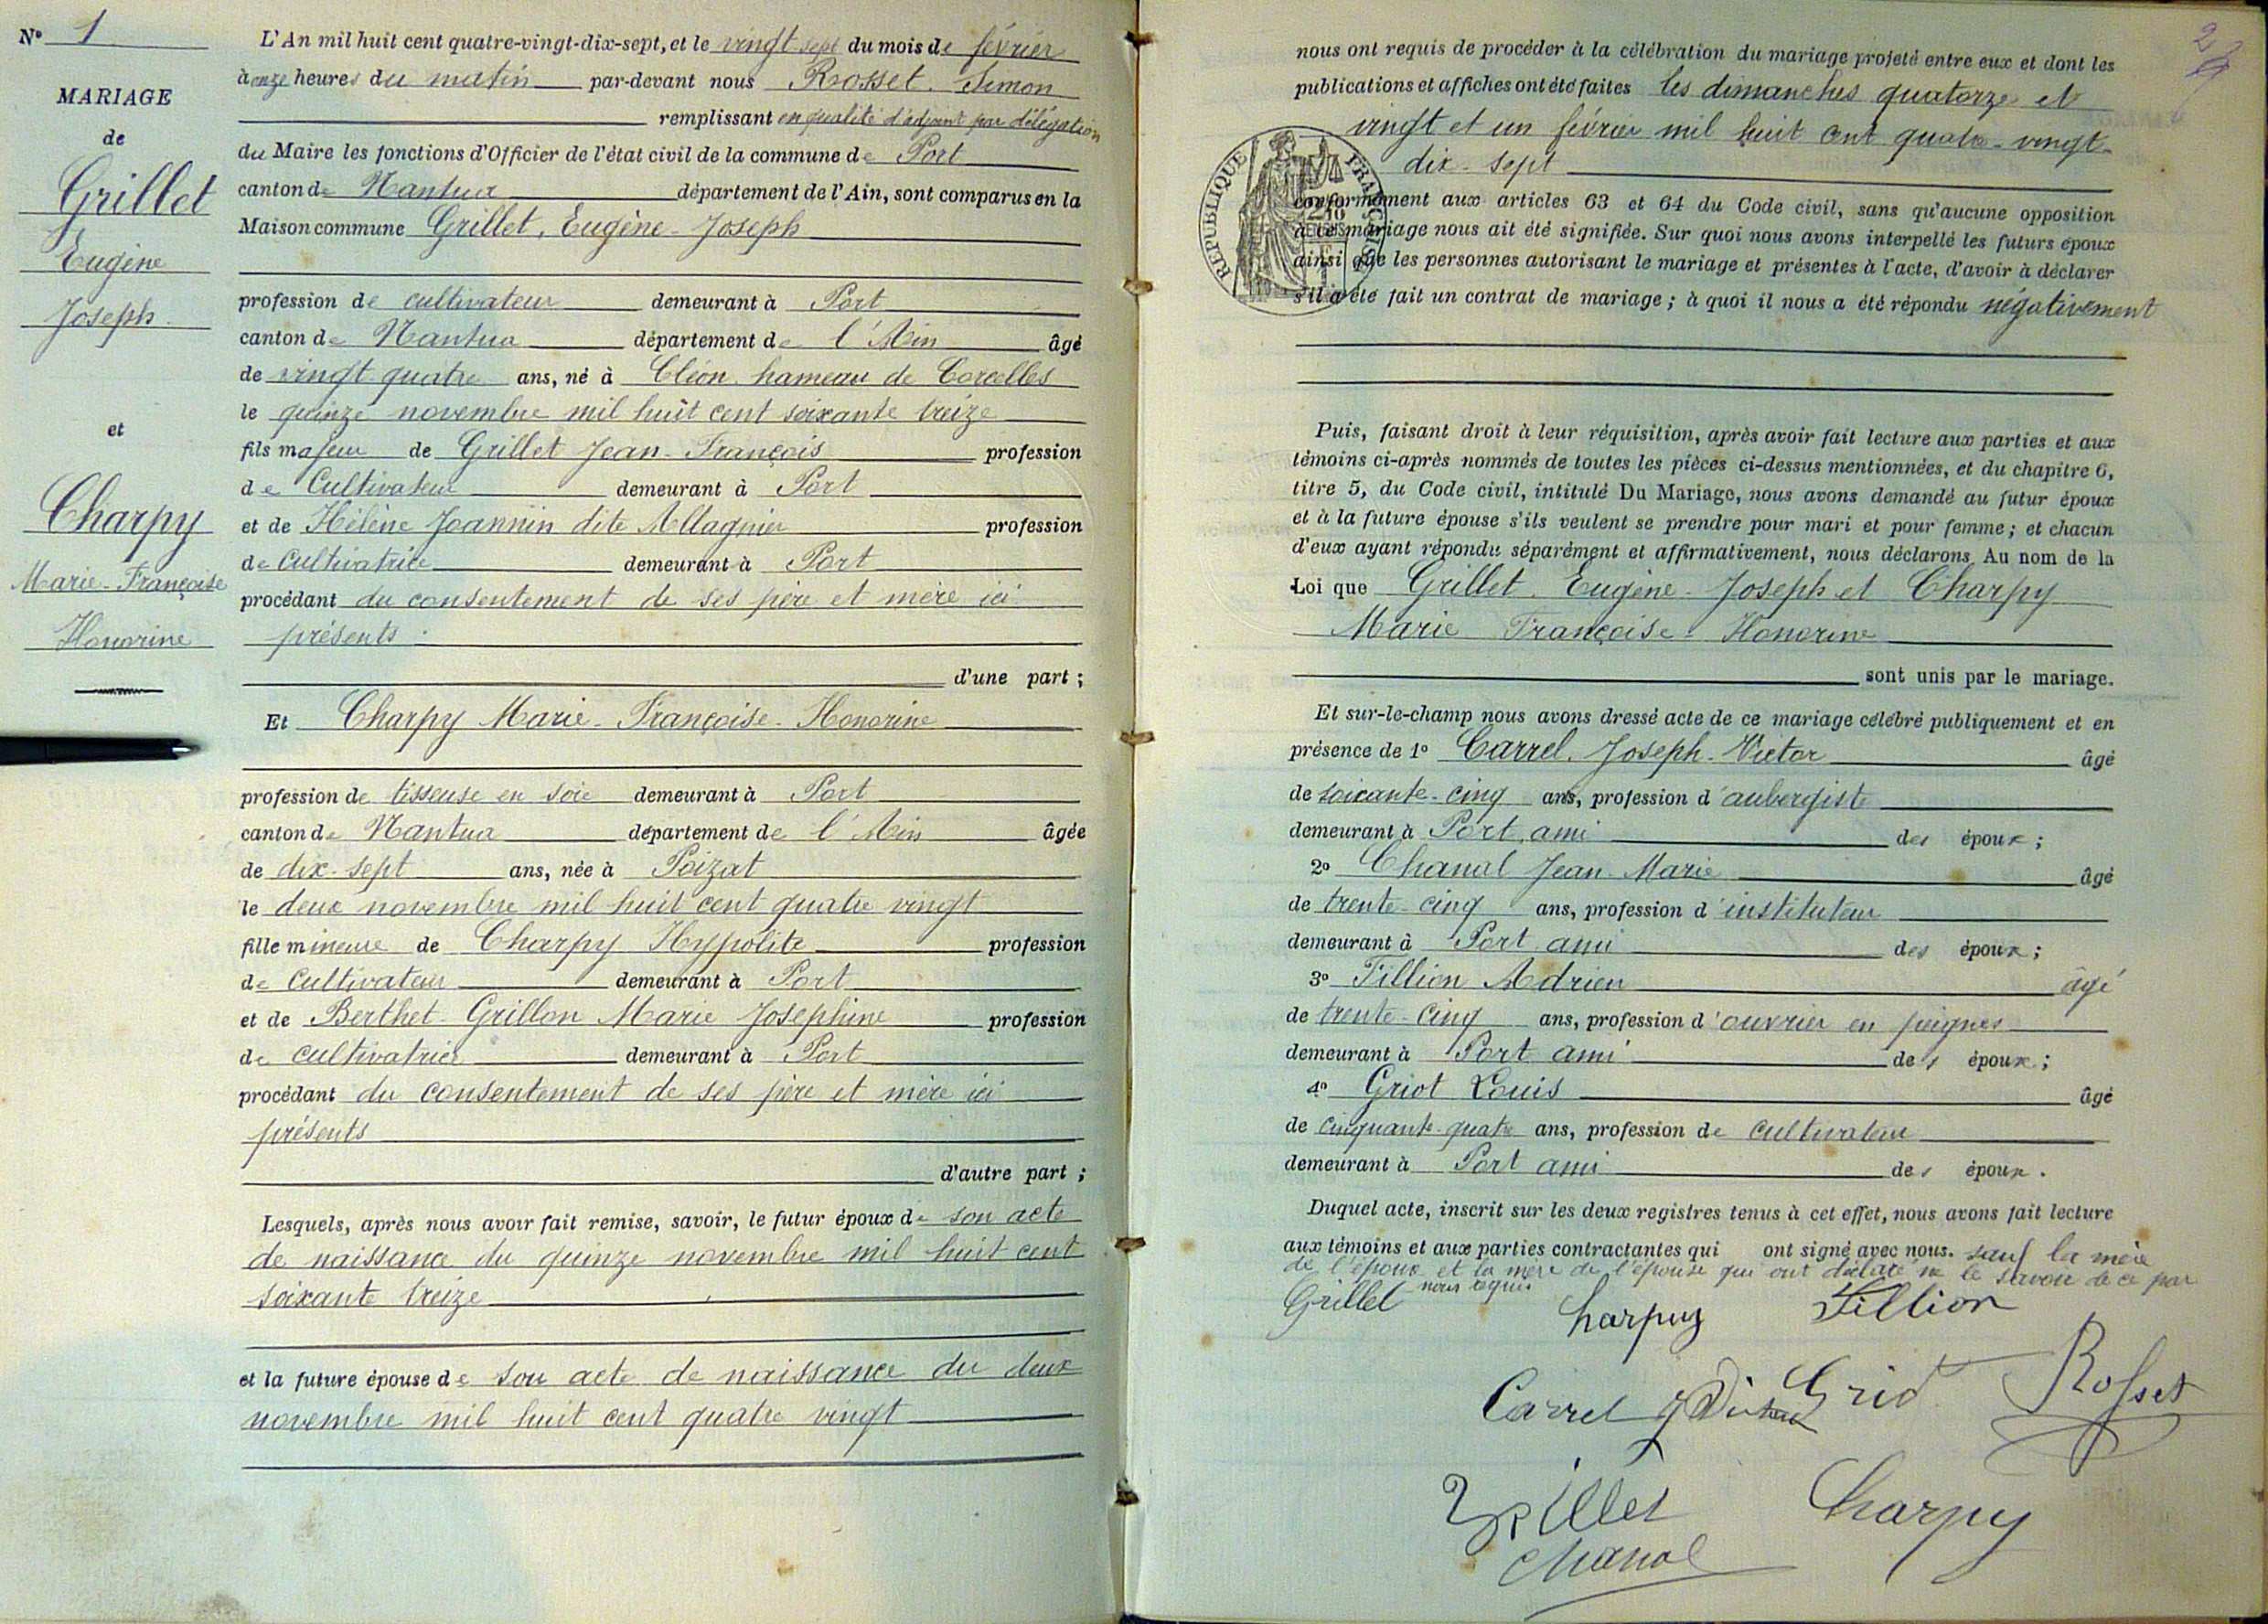 N° 1
MARIAGE
de
Grillet
Eugène
Joseph
et
Charpy
Marie-Françoise
Honorine
L'An mil huit cent quatre-vingt-dix-sept, et le vingt sept du mois de février
à onze heures du matin par-devant nous Rosset. Simon
remplissant en qualité d'adjoint par délégation
du Maire les fonctions d'Officier de l'état civil de la commune de Port
canton de Nantua département de l'Ain, sont comparus en la
Maison commune Grillet, Eugène-Joseph
profession de cultivateur demeurant à Port
canton de Nantua département de l'Ain âgé
de vingt quatre ans, né à Cléon hameau de Corcelles
le quinze novembre mil huit cent soixante treize
fils majeur de Grillet Jean-François profession
de Cultivateur demeurant à Port
et de Hélène Joannin dite Allagnier profession
de Cultivatrice demeurant à Port
procédant du consentement de ses père et mère ici
présents
d'une part ;
Et Charpy Marie-Françoise-Honorine
profession de tisseuse en soie demeurant à Port
canton de Nantua département de l'Ain âgée
de dix-sept ans, née à Poizat
le deux novembre mil huit cent quatre vingt
fille mineure de Charpy Hyppolite profession
de Cultivateur demeurant à Port
et de Berthet-Grillon Marie Joséphine profession
de cultivatrice demeurant à Port
procédant du consentement de ses père et mère ici
présents
d'autre part ;
Lesquels, après nous avoir fait remise, savoir, le futur époux de son acte
de naissance du quinze novembre mil huit cent
soixante treize
et la future épouse de son acte de naissance du deux
novembre mil huit cent quatre vingt
2
nous ont requis de procéder à la célébration du mariage projeté entre eux et dont les
publications et affiches ont été faites les dimanches quatorze et
vingt et un février mil huit cent quatre-vingt-
dix-sept
REPUBLIQUE FRANÇAISE
conformément aux articles 63 et 64 du Code civil, sans qu'aucune opposition
à ce mariage nous ait été signifiée. Sur quoi nous avons interpellé les futurs époux
ainsi que les personnes autorisant le mariage et présentes à l'acte, d'avoir à déclarer
s'il a été fait un contrat de mariage ; à quoi il nous a été répondu négativement
Puis, faisant droit à leur réquisition, après avoir fait lecture aux parties et aux
témoins ci-après nommés de toutes les pièces ci-dessus mentionnées, et du chapitre 6,
titre 5, du Code civil, intitulé Du Mariage, nous avons demandé au futur époux
et à la future épouse s'ils veulent se prendre pour mari et pour femme ; et chacun
d'eux ayant répondu séparément et affirmativement, nous déclarons Au nom de la
Loi que Grillet Eugène-Joseph et Charpy
Marie Françoise-Honorine
sont unis par le mariage.
Et sur-le-champ nous avons dressé acte de ce mariage célébré publiquement et en
présence de 1° Carrel. Joseph-Victor âgé
de soixante-cinq ans, profession d'aubergiste
demeurant à Port ami des époux ;
2° Chanal Jean-Marie âgé
de trente-cinq ans, profession d'instituteur
demeurant à Port ami des époux ;
3° Fillion Adrien âgé
de trente-cinq ans, profession d'ouvrier en peignes
demeurant à Port ami des époux ;
4° Griot Louis âgé
de cinquante-quatre ans, profession de cultivateur
demeurant à Port ami des époux.
Duquel acte, inscrit sur les deux registres tenus à cet effet, nous avons fait lecture
aux témoins et aux parties contractantes qui ont signé avec nous. sauf la mère
de l'époux et la mère de l'épouse qui ont déclaré ne le savoir de ce par
nous requis
Grillet Charpy Fillion
Carrel J Victor Griot Rosset
Grillet Charpy
Chanal